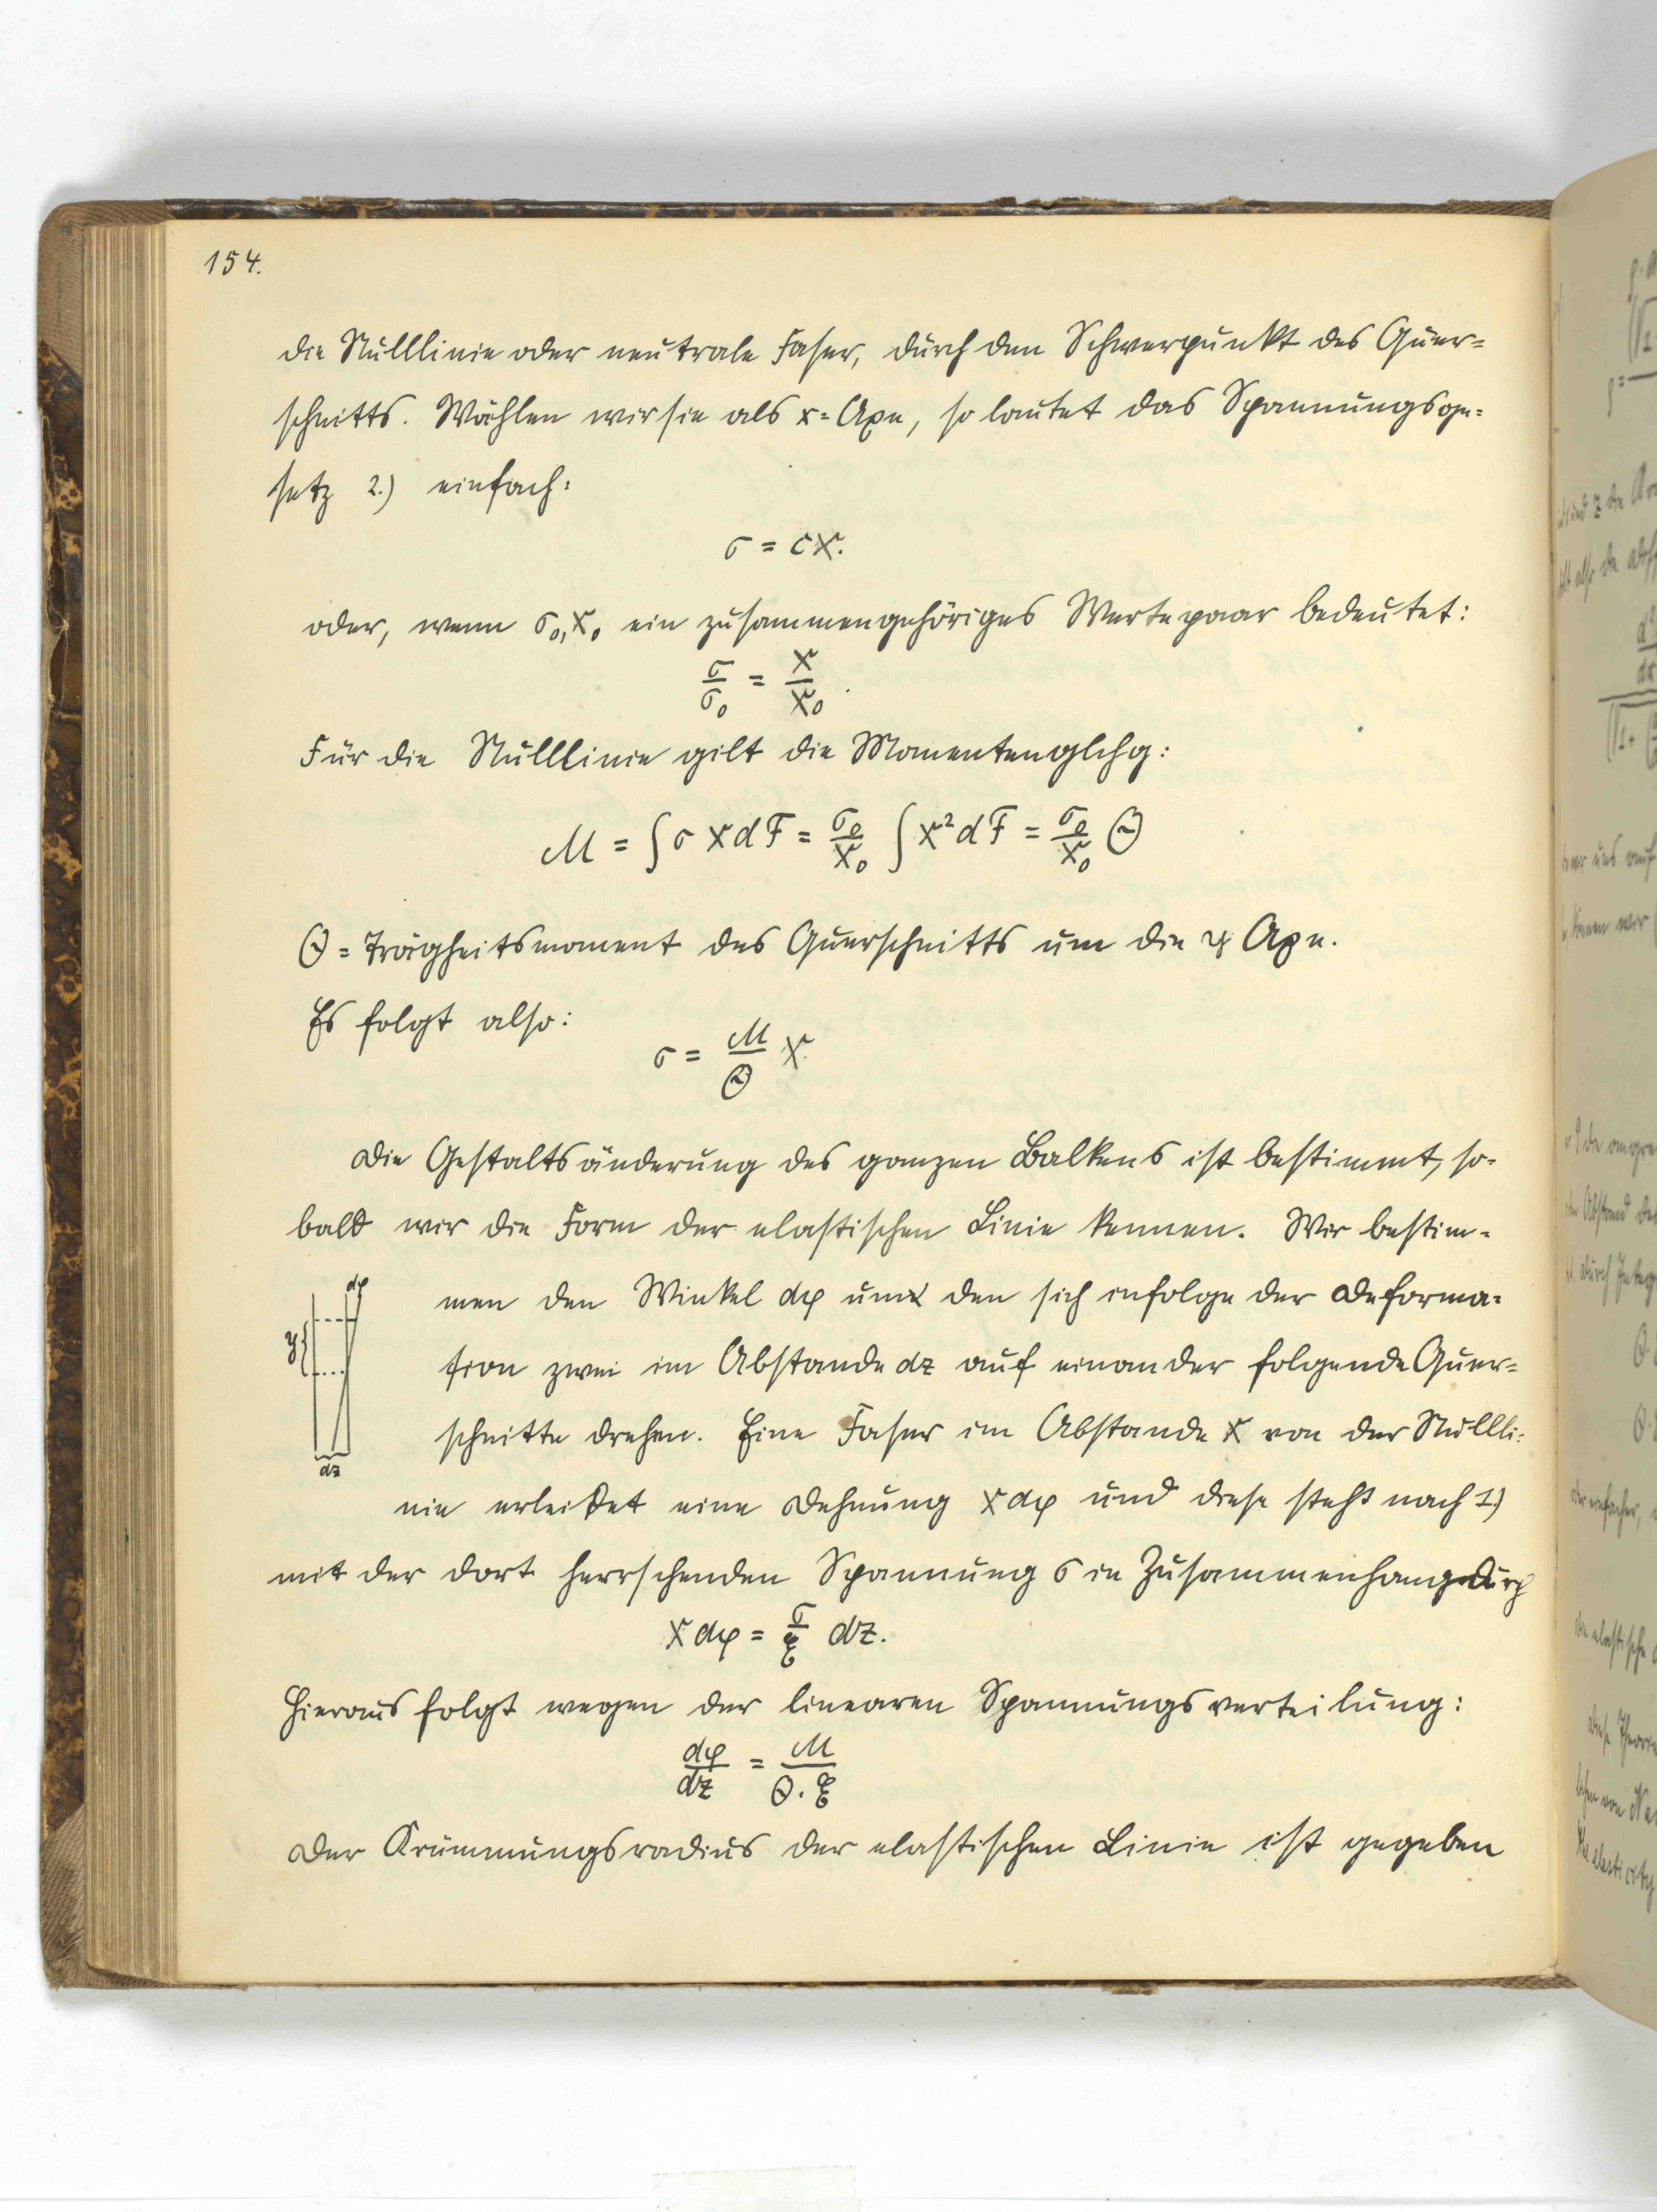 154.
die Nulllinie oder neutrale Faser, durch den Schwerpunkt des Quer=
schnitts. Wählen wir sie als x=Axe, so lautet das Spannungsge=
setz 2.) einfach:
σ = cx.
oder, wenn σ₀,x₀ ein zusammengehöriges Wertepaar bedeutet:
σ/σ₀ = x/x₀.
Für die Nulllinie gilt die Momentenglchg:
M = ∫σ x dF = σ₀/x₀ ∫x²dF = σ₀/x₀ Θ
Θ = Trägheitsmoment des Querschnitts um die y Axe.
Es folgt also:
σ = M/Θ x
Die Gestaltsänderung des ganzen Balkens ist bestimmt, so-
bald wir die Form der elastischen Linie kennen. Wir bestim-
men den Winkel dφ um den sich infolge der Deforma=
tion zwei im Abstande dz auf einander folgende Quer=
schnitte drehen. Eine Faser im Abstande x von der Nullli=
nie erleidet eine Dehnung x dφ und diese steht nach 1)
mit der dort herrschenden Spannung σ in Zusammenhang durch
dφ
y
dz
x dφ = σ/E dz.
Hieraus folgt wegen der linearen Spannungsverteilung:
dφ/dz = M/Θ.E
Der Krümmungsradius der elastischen Linie ist gegeben